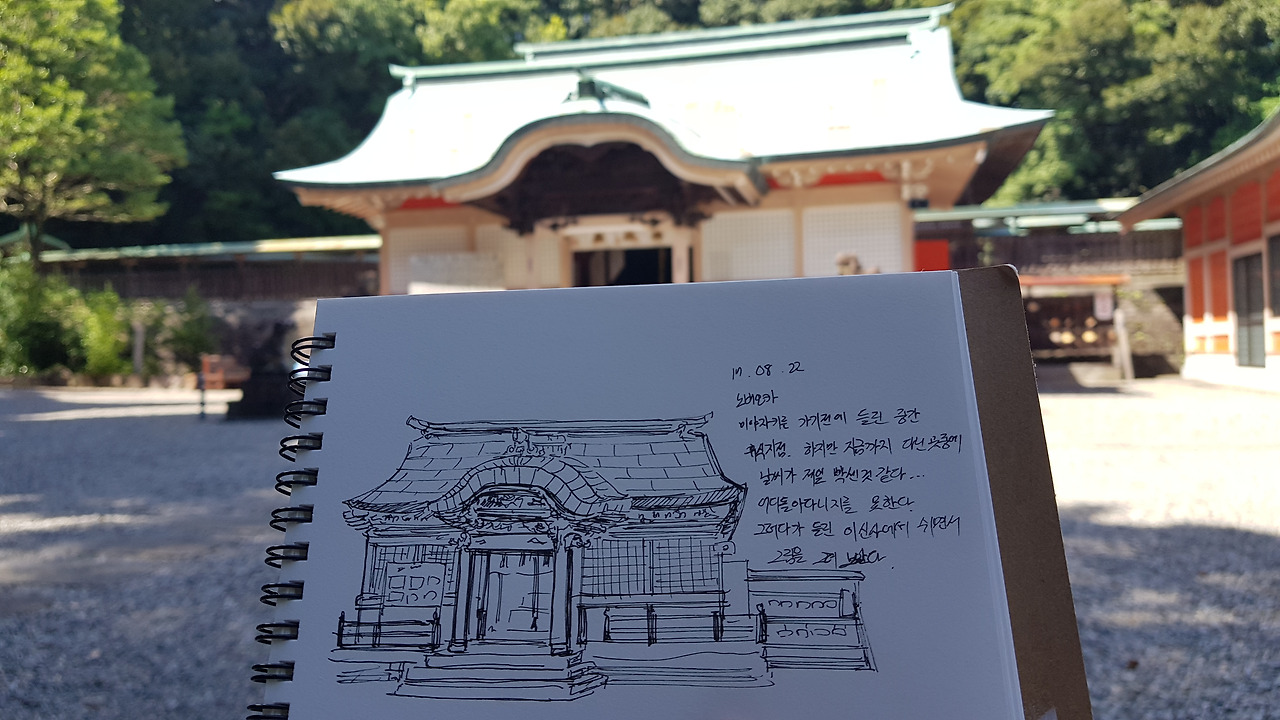 17. 08. 22
노베오카
미야자키로 가기전에 들린 중간
휴식지점. 하지만 지금까지 다닌 곳중에
날씨가 제일 빡센것 같다...
어디돌아다니지를 못한다.
그러다가 들린 이신사에서 쉬면서
그림을 그려 보았다.